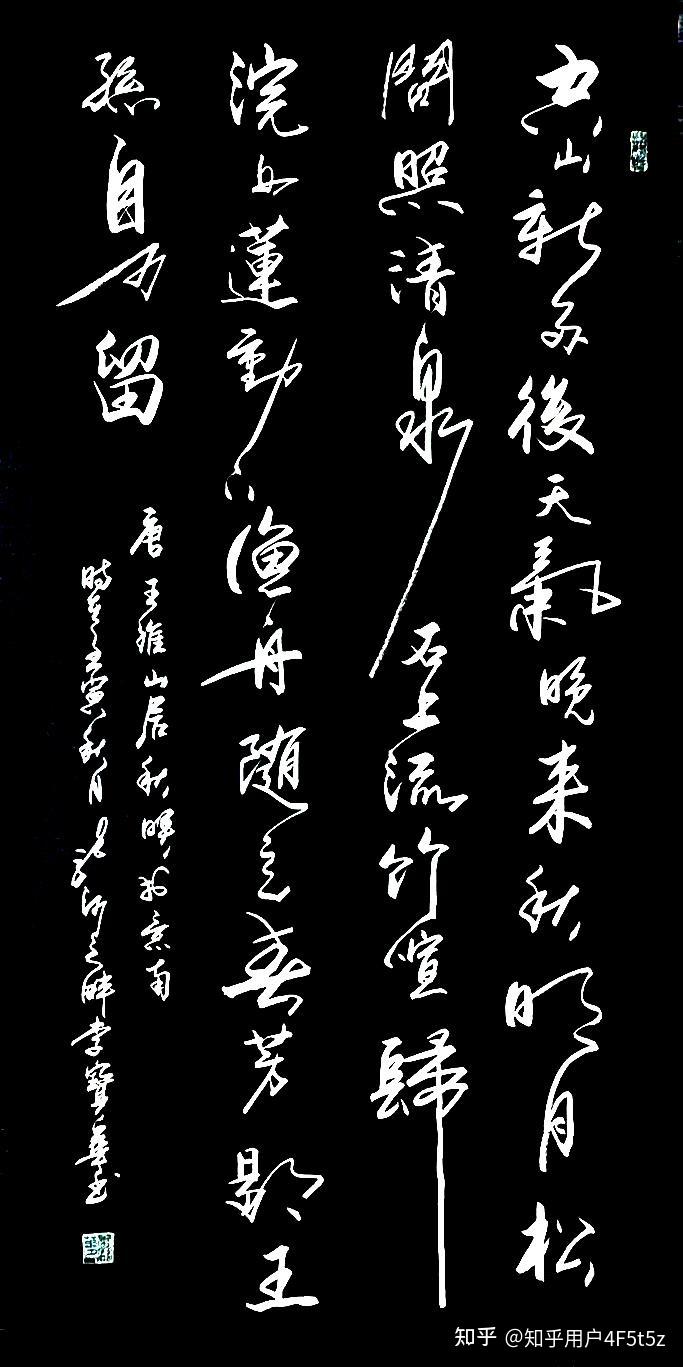 空山新雨後天氣晚来秋明月松
間照清泉石上流竹喧歸
浣女蓮動下漁舟随意春芳歇王
孫自可留
唐王維山居秋暝於
時在壬寅秋月河之畔李寶華書
知乎 @知乎用户4F5t5z